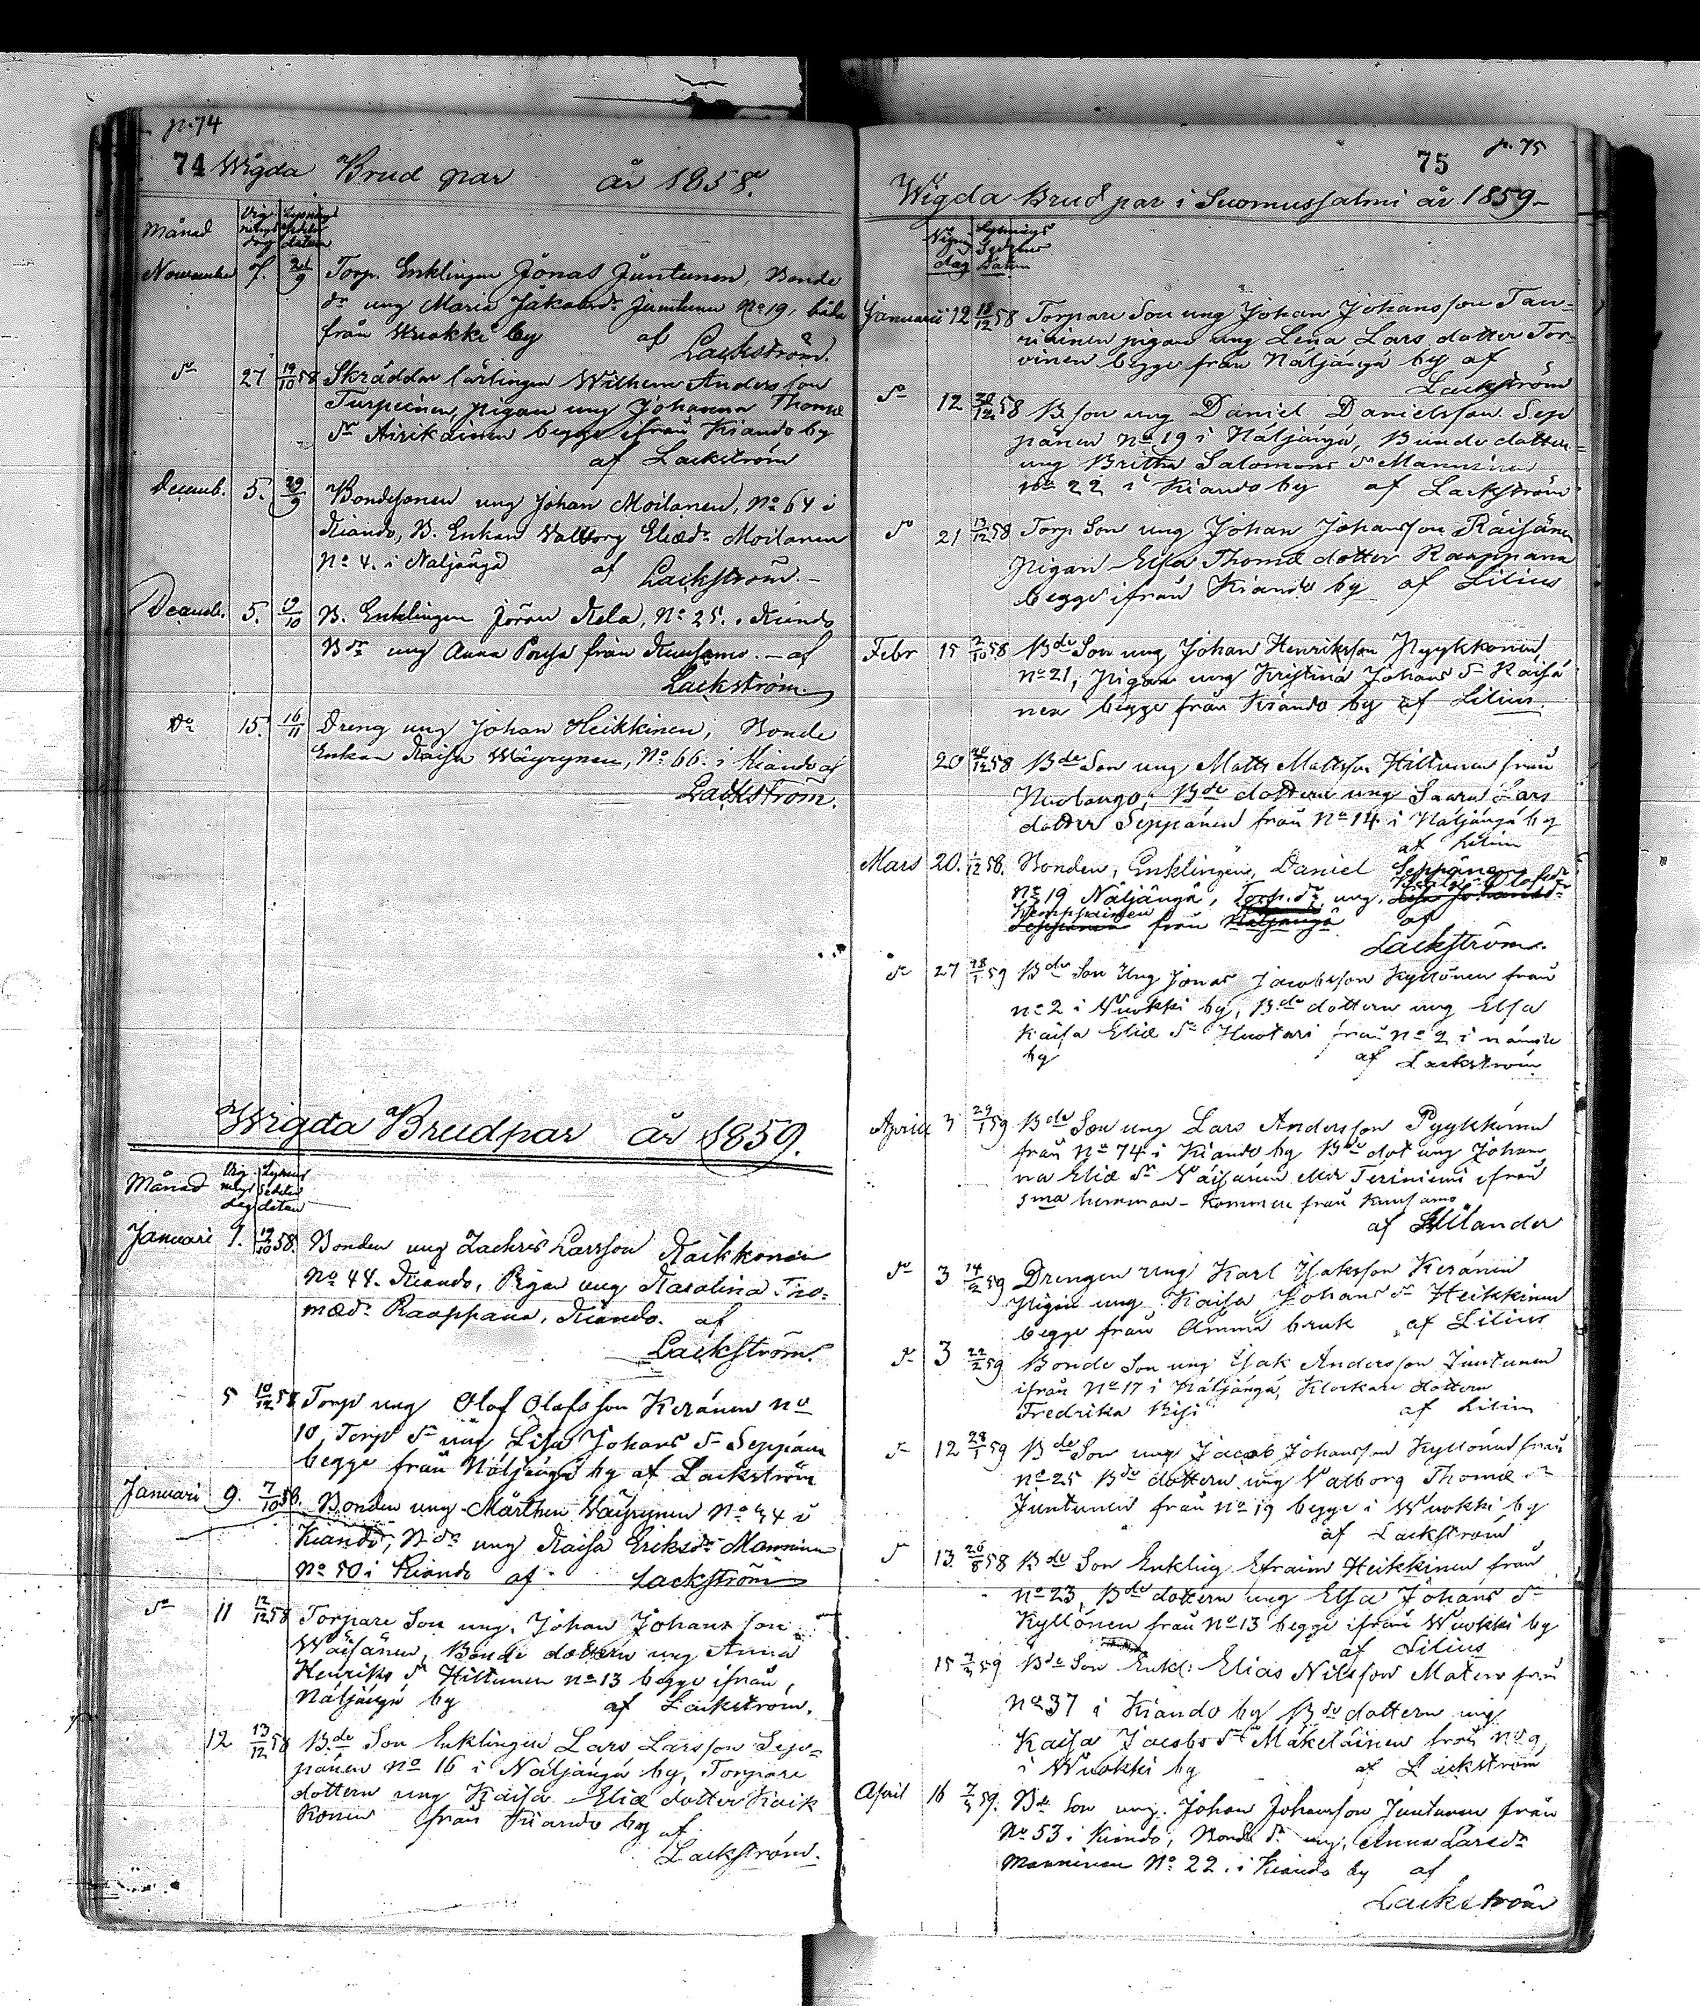 p. 74
74 Wigda Brud par år 1858.
Månad Vig nings dag Lysnings sedelns datum
November 7. 21/9 Torp. Enklingen Jonas Juntunen, Bonde
dr ung Maria Jakobsdr Juntunen No 19, båda
från Wuokki by af
Lackström.
do 27 19/10 58 Skräddar lärlingen Wilhelm Andersson
Turpeinen, pigan ung Johanna Thomæ
dr Airikainen begge ifrån Kiando by
af Lackström
Decemb. 5. 29/9 Bondesonen ung Johan Moilanen, No 64 i
Kiando, B. Enkan Valborg Eliædr Moilanen
No 4. i Näljängä af Lackström. –
Decemb. 5. 19/10 B. Enklingen Jöran Kela, No 25. i Kiando
Bdr ung Anna Pousa från Kuusamo. – af
Lackström
Do 15. 16/11 Dreng ung Johan Heikkinen, Bonde
Enkan Kaisa Wäyrynen, No 66. i Kiando af
Lackström.
Wigda Brudpar år 1859.
Månad Vig nings dag Lysnings sedelns datum
Januari 9. 19/10 58. Bonden ung Zachris Larsson Kaikkonen
No 44. Kiando, Pigan ung Karolina Tho=
mædr Raappana, Kiando. af
Lackström.
5 10/12 58 Torp ung Olof Olofsson Keränen no
10 Torp dr ung Lisa Johans dr Seppän
begge från Näljängä by af Lackström
Januari 9. 7/10 58. Bonden ung Mårthen Wäyrynen No 34 i
Kiando, B dr ung Kaisa Eriksdr Manninen
No 50 i Kiando af Lackström
do 11 12/12 58 Torpare Son ung. Johan Johansson
Wäisänen, Bonde dottern ung Anna
Henriks dr Hiltunen no 13 begge ifrån,
Näljängä by af Lackström.
12 13/12 58 Bde Son Enklingen Lars Larsson Sep=
pänen no 16 i Näljängä by, Torpare
dottern ung Kaisa Eliæ dotter Kaik
konen från Kiando by af
Lackström.
p. 75
75
Wigda Brud par i Suomussalmi år 1859 –
Vign. dag Lysnings Sedelns Datum
Januarii 12 18/12 58 Torpare Son ung Johan Johansson Tau=
riainen pigan ung Lena Lars dotter Tor=
vinen begge från Näljängä by af
Lackström
do 12 20/12 58 B son ung Daniel Danielsson Sep
pänen no 19 i Näljängä, Bonde dotter=
ung Britha Salomons dr Manninen
no 22 i Kiando by af Lackström
do 21 13/12 58 Torp Son ung Johan Johansson Räisänen
Pigan Elsa Thomæ dotter Raappana
begge ifrån Kiando by af Lilius
Febr 15 2/10 58 Bde Son ung Johan Henriksson Pyykkönen
no 21, pigan ung Kristina Johans dr Räisä
nen begge från Kiando by af Lilius.
20 20/12 58 Bde Son ung Matts Mattsson Hiltunen från
Bde dottern ung Saara Lars
dotter Seppänen från No 14 i Näljängä by
af Lilius
Mars 20. 1/12 58. Bonden, Enklingen, Daniel Seppänen
No 19 Näljängä, Torp. dr. ung, Olofsdr
från Näljängä af
Lackström.
do 27 28/1 59 Bde Son Ung Jonas Jacobsson Kyllönen från
no 2 i Wuokki by, Bde dottern ung Elsa
Kaisa Eliæ dr Huotari från no 2 i nämde
by af Lackström
Aprill 3 29/1 59 Bde Son ung Lars Andersson Pyykkönen
från No 74 i Kiando by Bde dot ung Johan
na Eliæ dr Väisänen eller Teriniemi ifrån
sma hemman – Kommen från Kuusamo
af
do 3 14/2 59 Drengen Ung Karl Isaksson Keränen
Pigan ung Kaisa Johans dr Heikkinen
begge från Ämmä bruk af Lilius
do 3 22/2 59 Bonde Son ung Isak Andersson Juntunen
ifrån No 17 i Näljängä, Klockare dottern
Fredrika Bisi af Lilius
do 12 28/1 59 Bde Son ung Jacob Johansson Kyllönen från
no 25 Bde dottern ung Walborg Thomæ dr
Juntunen från no 19 begge i Wuokki by
af Lackström
do 13 26/8 58 Bde Son Enkling Efraim Heikkinen från
no 23, Bde dottern ung Elsa Johans dr
Kyllönen från no 13 begge ifrån Wuokki by
af Lilius
15 7/3 59 Bde Son Enkl: Elias Nilsson Matero från
no 37 i Kiando by Bde dottern ung
Kaisa Jacobs dr Mäkeläinen från no 9,
i Wuokki by af Lackström
April 16 7/3 59. Bde Son ung. Johan Johansson Juntunen från
No 53 i Kiando, Bonde dr ung, Anna Larsdr
Manninen No 22. i Kiando by af
Lackström